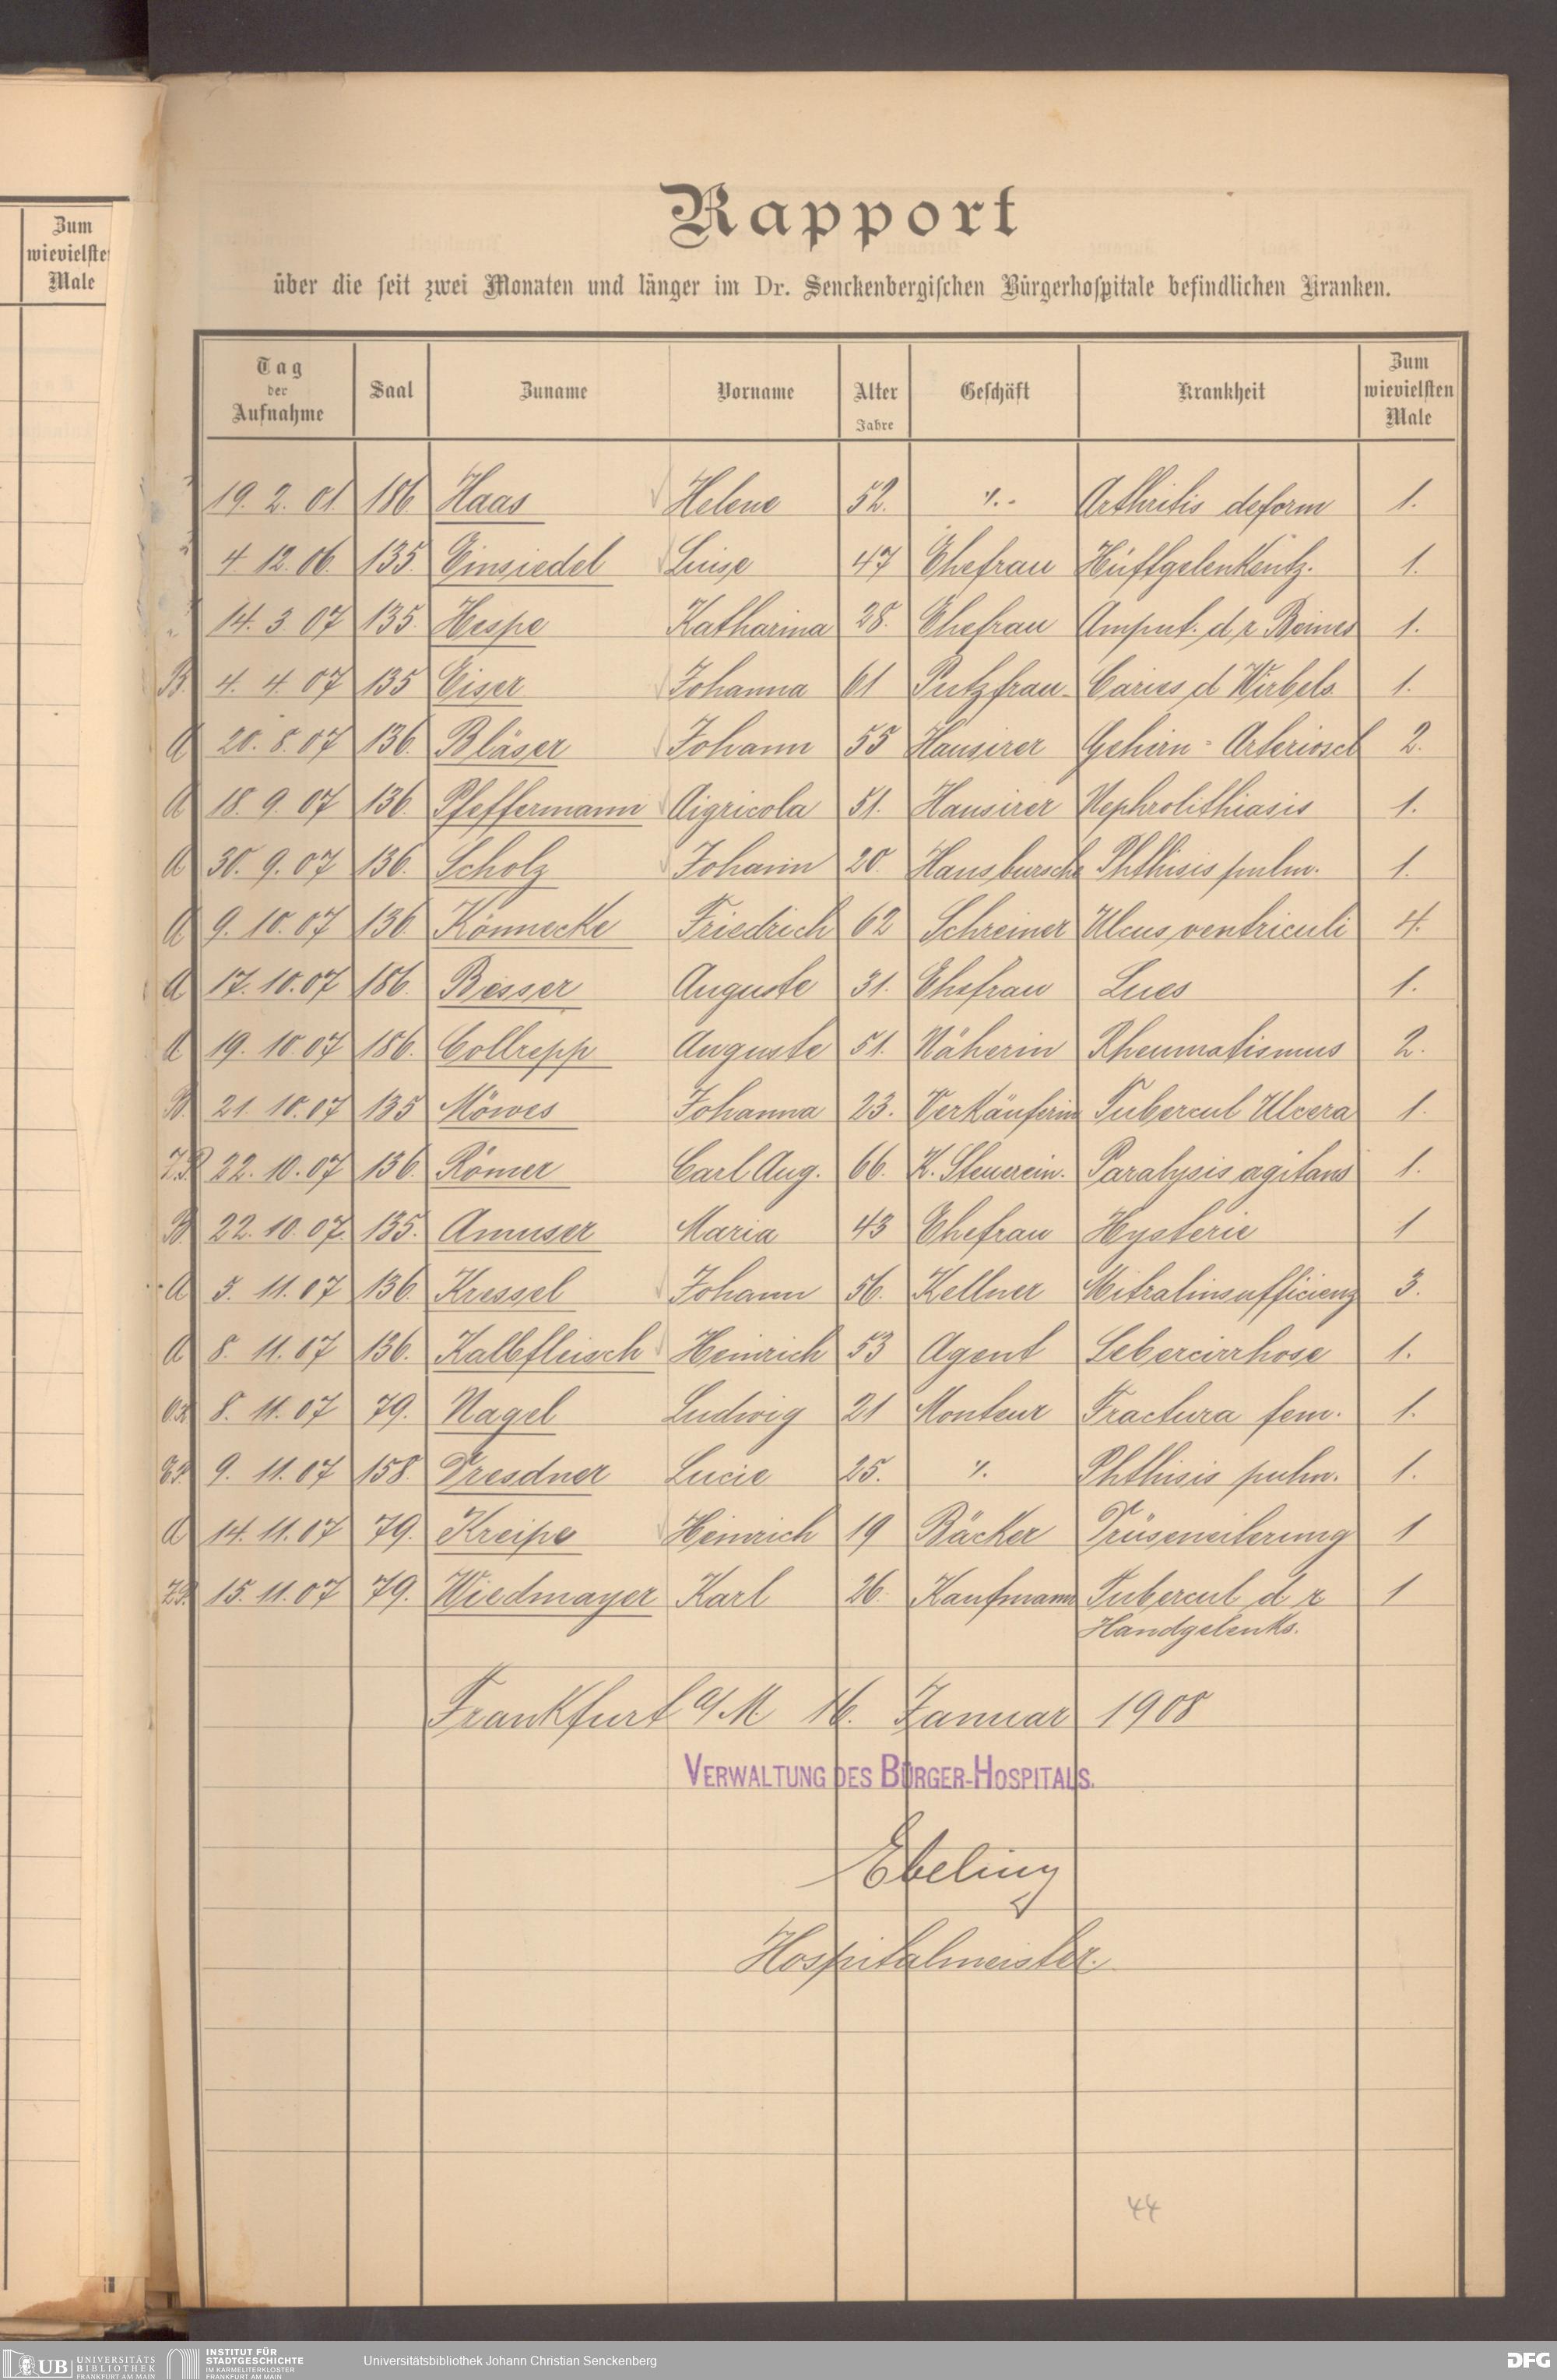 Zum
wievielste
Male
Rapport
über die seit zwei Monaten und länger im Dr. Senckenbergischen Bürgerhospitale befindlichen Kranken.
Tag der Aufnahme Saal Zuname Vorname Alter Jahre Geschäft Krankheit Zum wievielsten Male
19. 2. 01 186 Haas Helene 52. ". - Arthritis deform 1.
4 12. 06. 135. Einsiedel Luise 47 Ehefrau Hüftgelenkentz. 1.
14. 3 07 135 Hespe Katharina 28. Ehefrau Amput. d r Beines 1.
B. 4. 4. 07 135 Eiser Johanna 61 Putzfrau Caries d Wirbels 1.
A 20. 8. 07 136. Bläser Johann 55 Hausirer Gehirn - Arterioscl 2.
A 18. 9. 07 136 Pfeffermann Aigricola 51. Hausirer Nephrolithiasis 1.
A 30. 9. 07 136. Scholz Johann 20 Hausbursche Phthisis pulm. 1.
A 9. 10. 07 136 Könnecke Friedrich 62 Schreiner Ulcus ventriculi 4.
A 17. 10. 07 186. Besser Auguste 31. Ehefrau Lues 1.
A 19. 10. 07 186. Collrepp Auguste 51. Näherin Rheumatismus 2.
B. 21. 10. 07 135 Möwes Johanna 23. Verkäuferin Tubercul Ulcera 1.
22. 10. 07 136. Römer Carl Aug. 66. K. Steuerein. Paralysis agitans 1.
B. 22. 10. 07. 135. Amuser Maria 43 Ehefrau Hysterie 1
A 5. 11. 07 136. Kressel Johann 56. Kellner Mitralinsufficienz 3.
A 8. 11. 07 136. Kalbfleisch Heinrich 53 Agent Lebercirrhose 1.
8. 11. 07 79. Nagel Ludwig 21 Monteur Fractura fem. 1.
9. 11. 07 158. Dresdner Lucie 25. ". Phthisis pulm. 1.
A 14. 11. 07 79. Kreipe Heinrich 19 Bäcker Drüseneiterung 1
15. 11. 07 79. Wiedmayer Karl 26. Kaufmann Tubercul d r 1
Handgelenks.
Frankfurt a/M 16. Januar 1908
VERWALTUNG DES BÜRGER-HOSPITALS.
Ebeling
Hospitalmeister.
44
UB UNIVERSITÄTS BIBLIOTHEK FRANKFURT AM MAIN
INSTITUT FÜR STADTGESCHICHTE IM KARMELITERKLOSTER FRANKFURT AM MAIN
Universitätsbibliothek Johann Christian Senckenberg
DFG